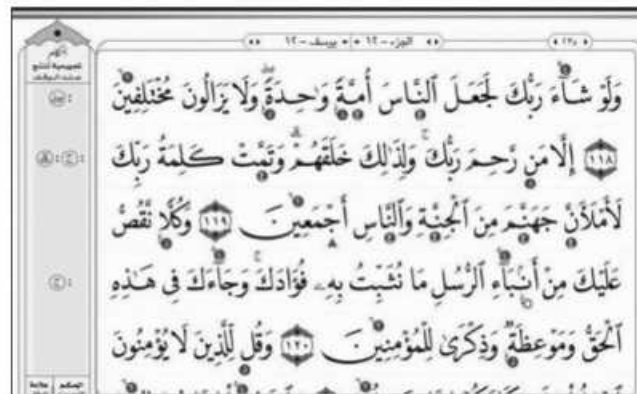 الجزء - ١٢ * يوسف - ١٢
وَلَوْ شَآءَ رَبُّكَ لَجَعَلَ ٱلنَّاسَ أُمَّةً وَٰحِدَةً وَلَا يَزَالُونَ مُخْتَلِفِينَ
١١٨ إِلَّا مَن رَّحِمَ رَبُّكَ وَلِذَٰلِكَ خَلَقَهُمْ وَتَمَّتْ كَلِمَةُ رَبِّكَ
لَأَمْلَأَنَّ جَهَنَّمَ مِنَ ٱلْجِنَّةِ وَٱلنَّاسِ أَجْمَعِينَ ١١٩ وَكُلًّا نَّقُصُّ
عَلَيْكَ مِنْ أَنۢبَآءِ ٱلرُّسُلِ مَا نُثَبِّتُ بِهِۦ فُؤَادَكَ وَجَآءَكَ فِى هَـٰذِهِ
ٱلْحَقُّ وَمَوْعِظَةٌ وَذِكْرَىٰ لِلْمُؤْمِنِينَ ١٢٠ وَقُل لِّلَّذِينَ لَا يُؤْمِنُونَ